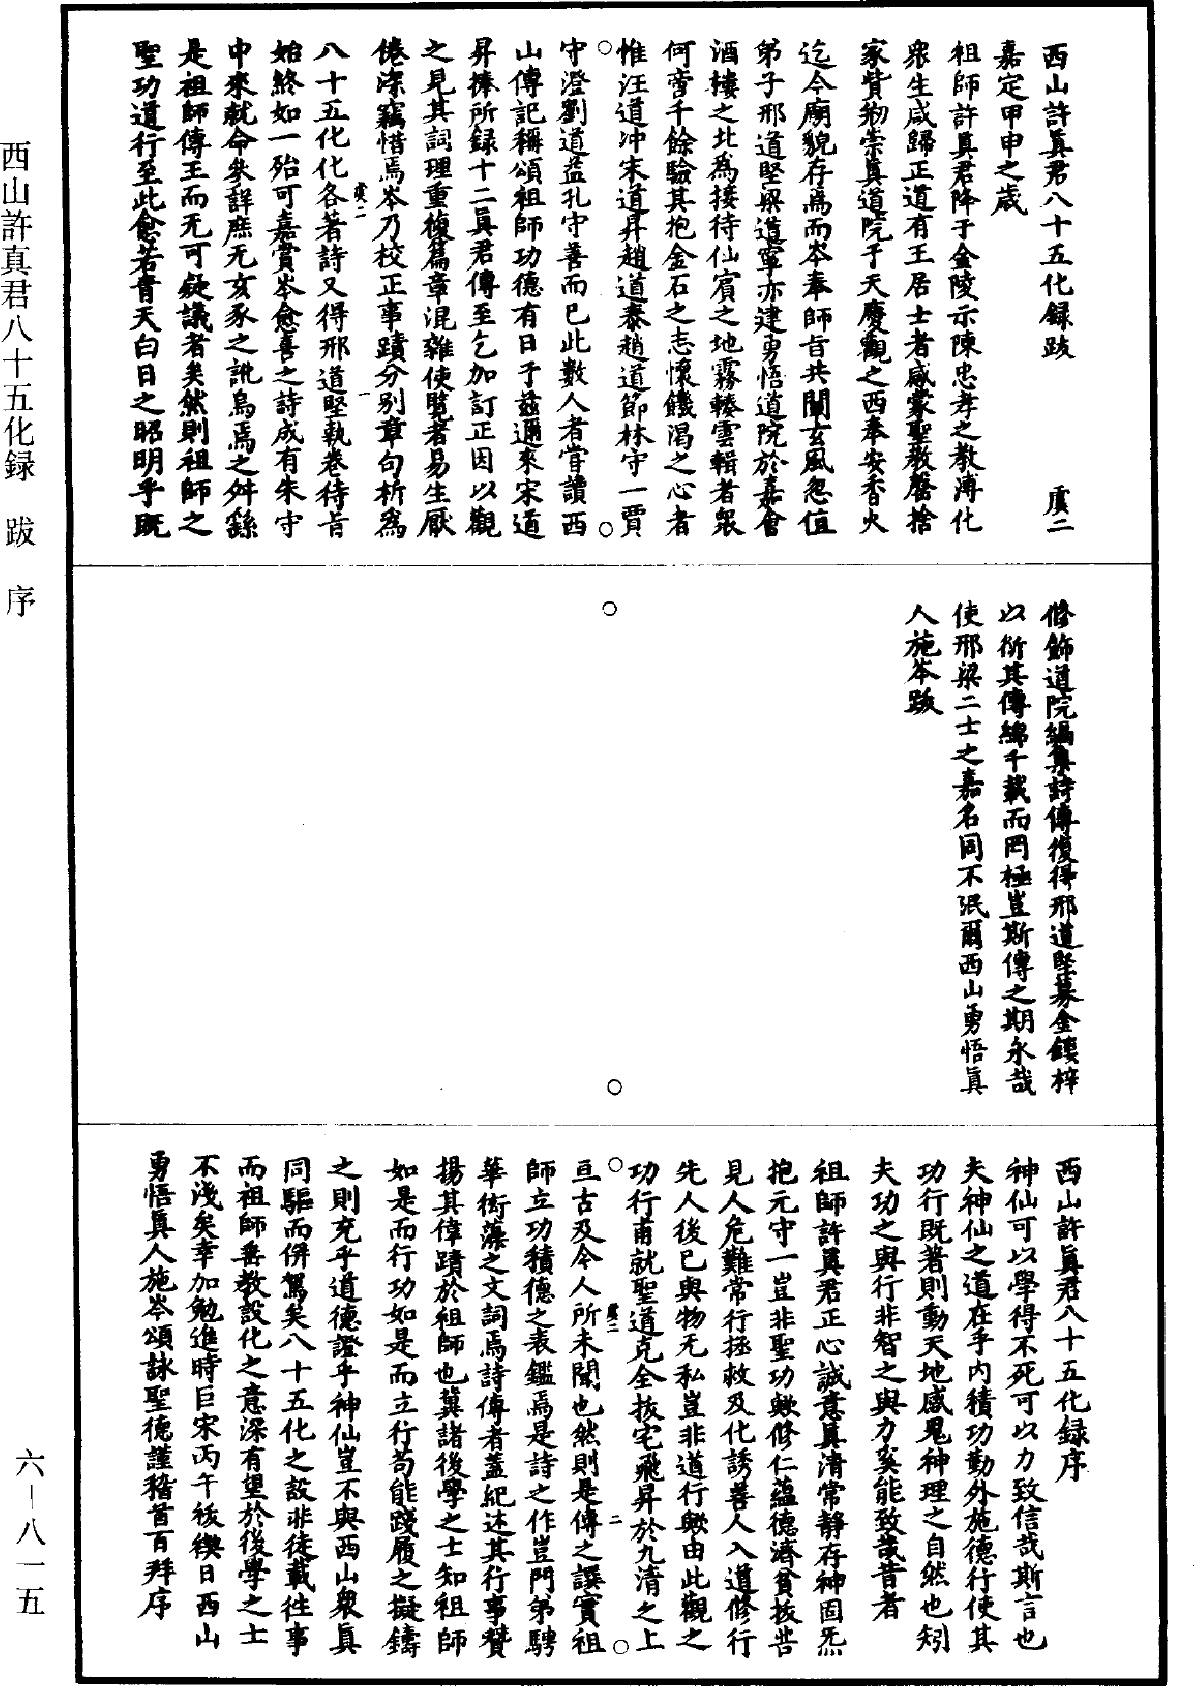 西山許真君八十五化録　跋　序
六－八一五
西山許眞君八十五化録跋　虞二
嘉定甲申之歳
祖師許眞君降于金陵示陳忠孝之教溥化
衆生咸歸正道有王居士者感蒙聖教罄捨
家貲剏崇眞道院于天慶觀之西奉安香火
迄今廟貌存焉而岑奉師旨共闡玄風忽值
弟子邢道堅梁道寧亦建勇悟道院於嘉會
酒樓之北爲接待仙賓之地霧輳雲輯者衆
何啻千餘驗其抱金石之志懷饑渴之心者
惟汪道冲朱道昇趙道泰趙道節林守一賈
守澄劉道益孔守善而已此數人者嘗讀西
山傳記稱頌祖師功德有日于茲邇來宋道
昇捧所録十二眞君傳至乞加訂正因以觀
之見其詞理重複篇章混雜使覽者易生厭
倦深竊惜焉岑乃校正事蹟分别章句析爲
八十五化化各著詩又得邢道堅執卷待旨
始終如一殆可嘉賞岑愈喜之詩成有朱守
中來就命矣詳庶无亥豕之訛烏焉之舛繇
是祖師傳王而无可疑議者矣然則祖師之
聖功道行至此愈若青天白日之昭明乎既
修飾道院編集詩傳復得邢道堅募金鏤梓
以衍其傳綿千載而罔極豈斯傳之期永哉
使邢梁二士之嘉名同不泯爾西山勇悟眞
人施岑跋
西山許眞君八十五化録序
神仙可以學得不死可以力致信哉斯言也
夫神仙之道在乎内積功勤外施德行使其
功行既著則動天地感鬼神理之自然也矧
夫功之與行非智之與力奚能致哉昔者
祖師許眞君正心誠意眞清常靜存神固炁
抱元守一豈非聖功歟修仁蘊德濟貧拔苦
見人危難常行拯救及化誘善人入道修行
先人後已與物无私豈非道行歟由此觀之
功行甫就聖道克全拔宅飛昇於九清之上
亘古及今人所未聞也然則是傳之譔實祖
師立功積德之表鑑焉是詩之作豈門弟騁
華衒藻之文詞焉詩傳者蓋紀述其行事贊
揚其偉蹟於祖師也冀諸後學之士知祖師
如是而行功如是而立行苟能踐履之擬鑄
之則充乎道德證乎神仙豈不與西山衆眞
同驅而併駕矣八十五化之設非徒載徃事
而祖師垂教設化之意深有望於後學之士
不淺矣幸加勉進時巨宋丙午後禊日西山
勇悟眞人施岑頌詠聖德謹稽首百拜序